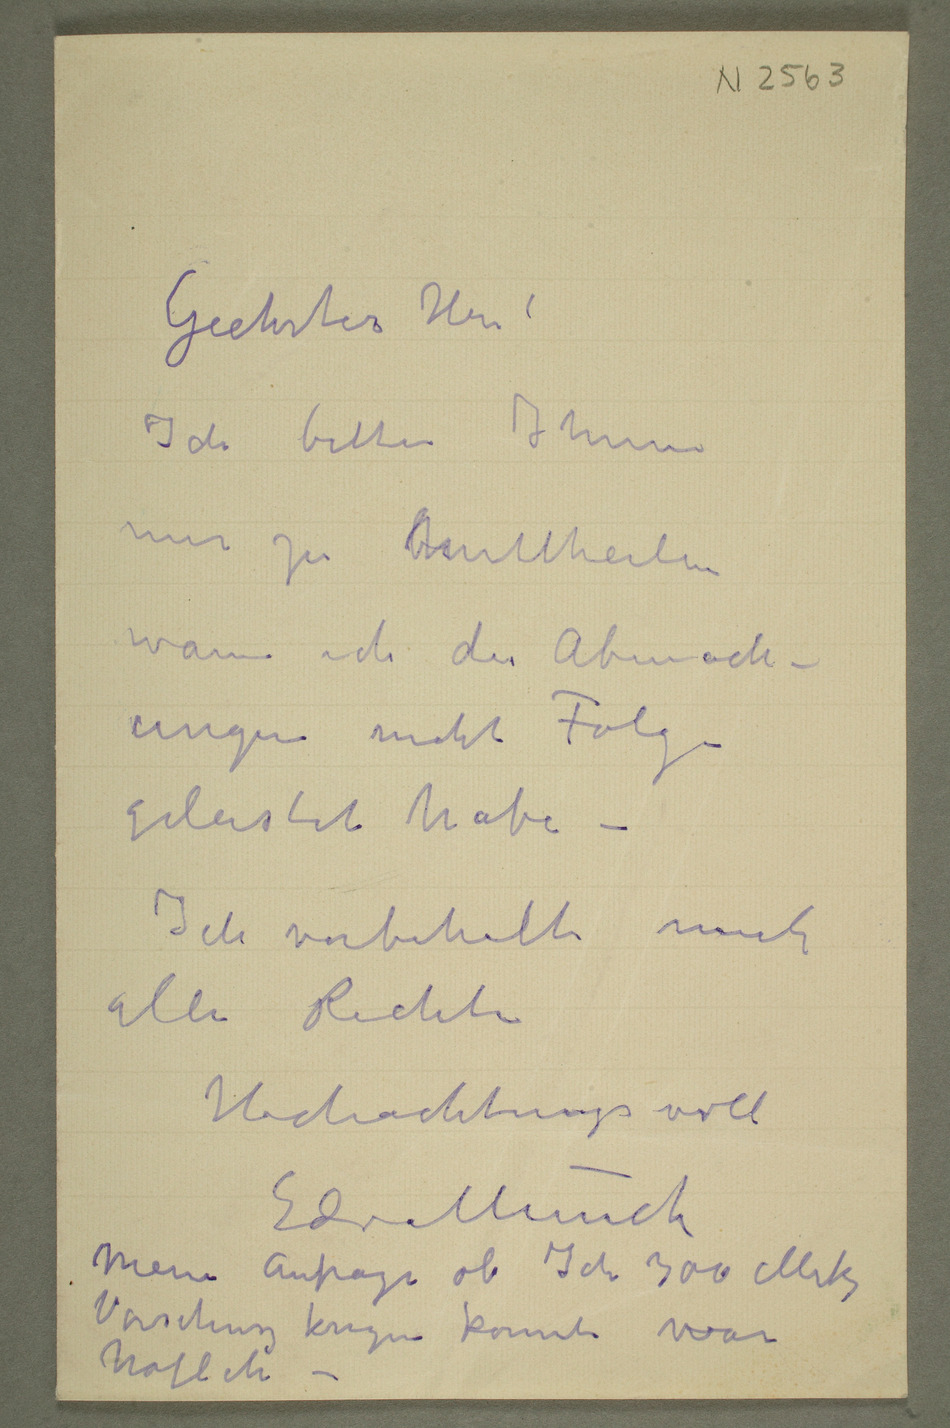 N 2563
Geehrter Herr!
Ich bitte Ihnen
mir zu mittheilen
wann ich die Abmach-
ungen nicht Folge
geleistet habe –
Ich vorbehalte mich
alle Rechte
Hochachtungsvoll
Edv. Munch
Meine Anfrage ob Ich 300 Mrk
Vorschusz krigen konnte war
höflich –